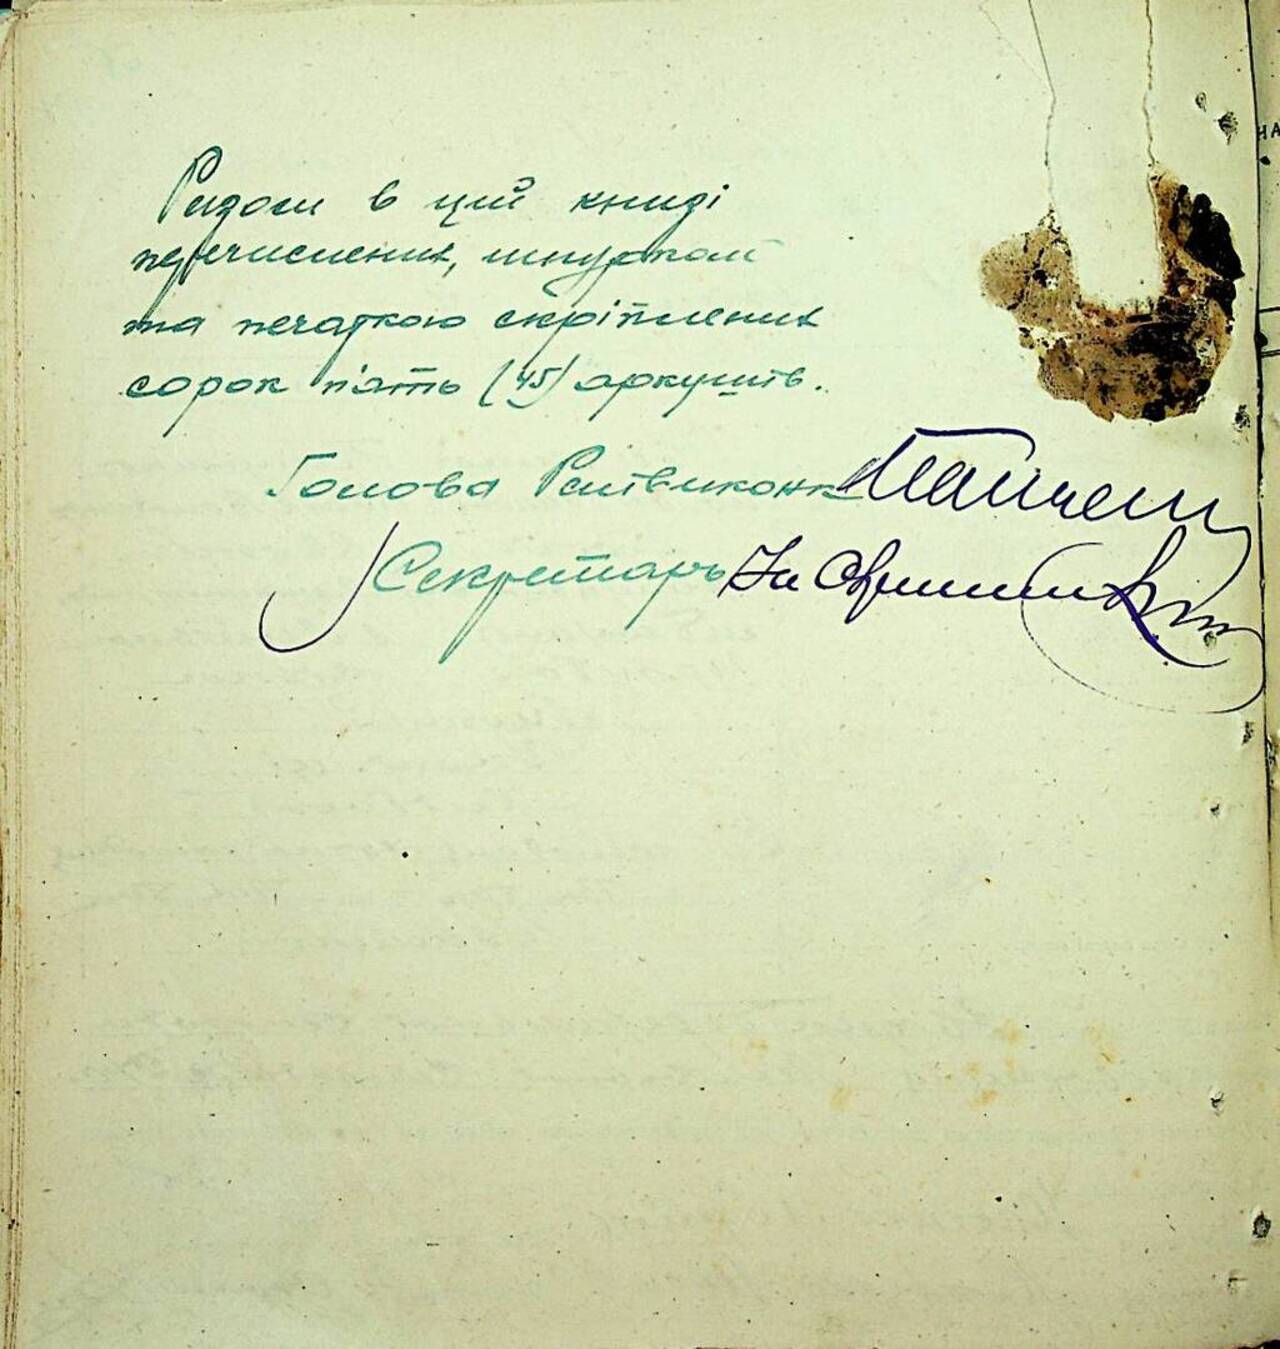 Разом в цій книзі
перечислених, шнурком
та печаткою скріплених
сорок п'ять (45) аркушів.
Голова Райвиконк
Секретар
НА